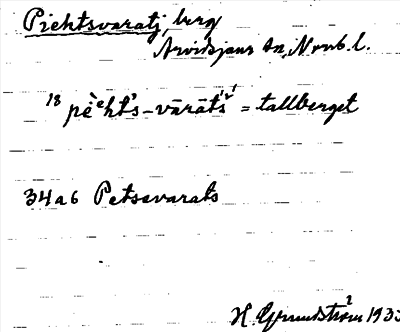 Piehtsvaratj, berg
Arvidsjaur sn, Norrb. l.
18 pèᵉht's-vārāts = tallberget
34a6 Petsevarats
H. Grundström 193